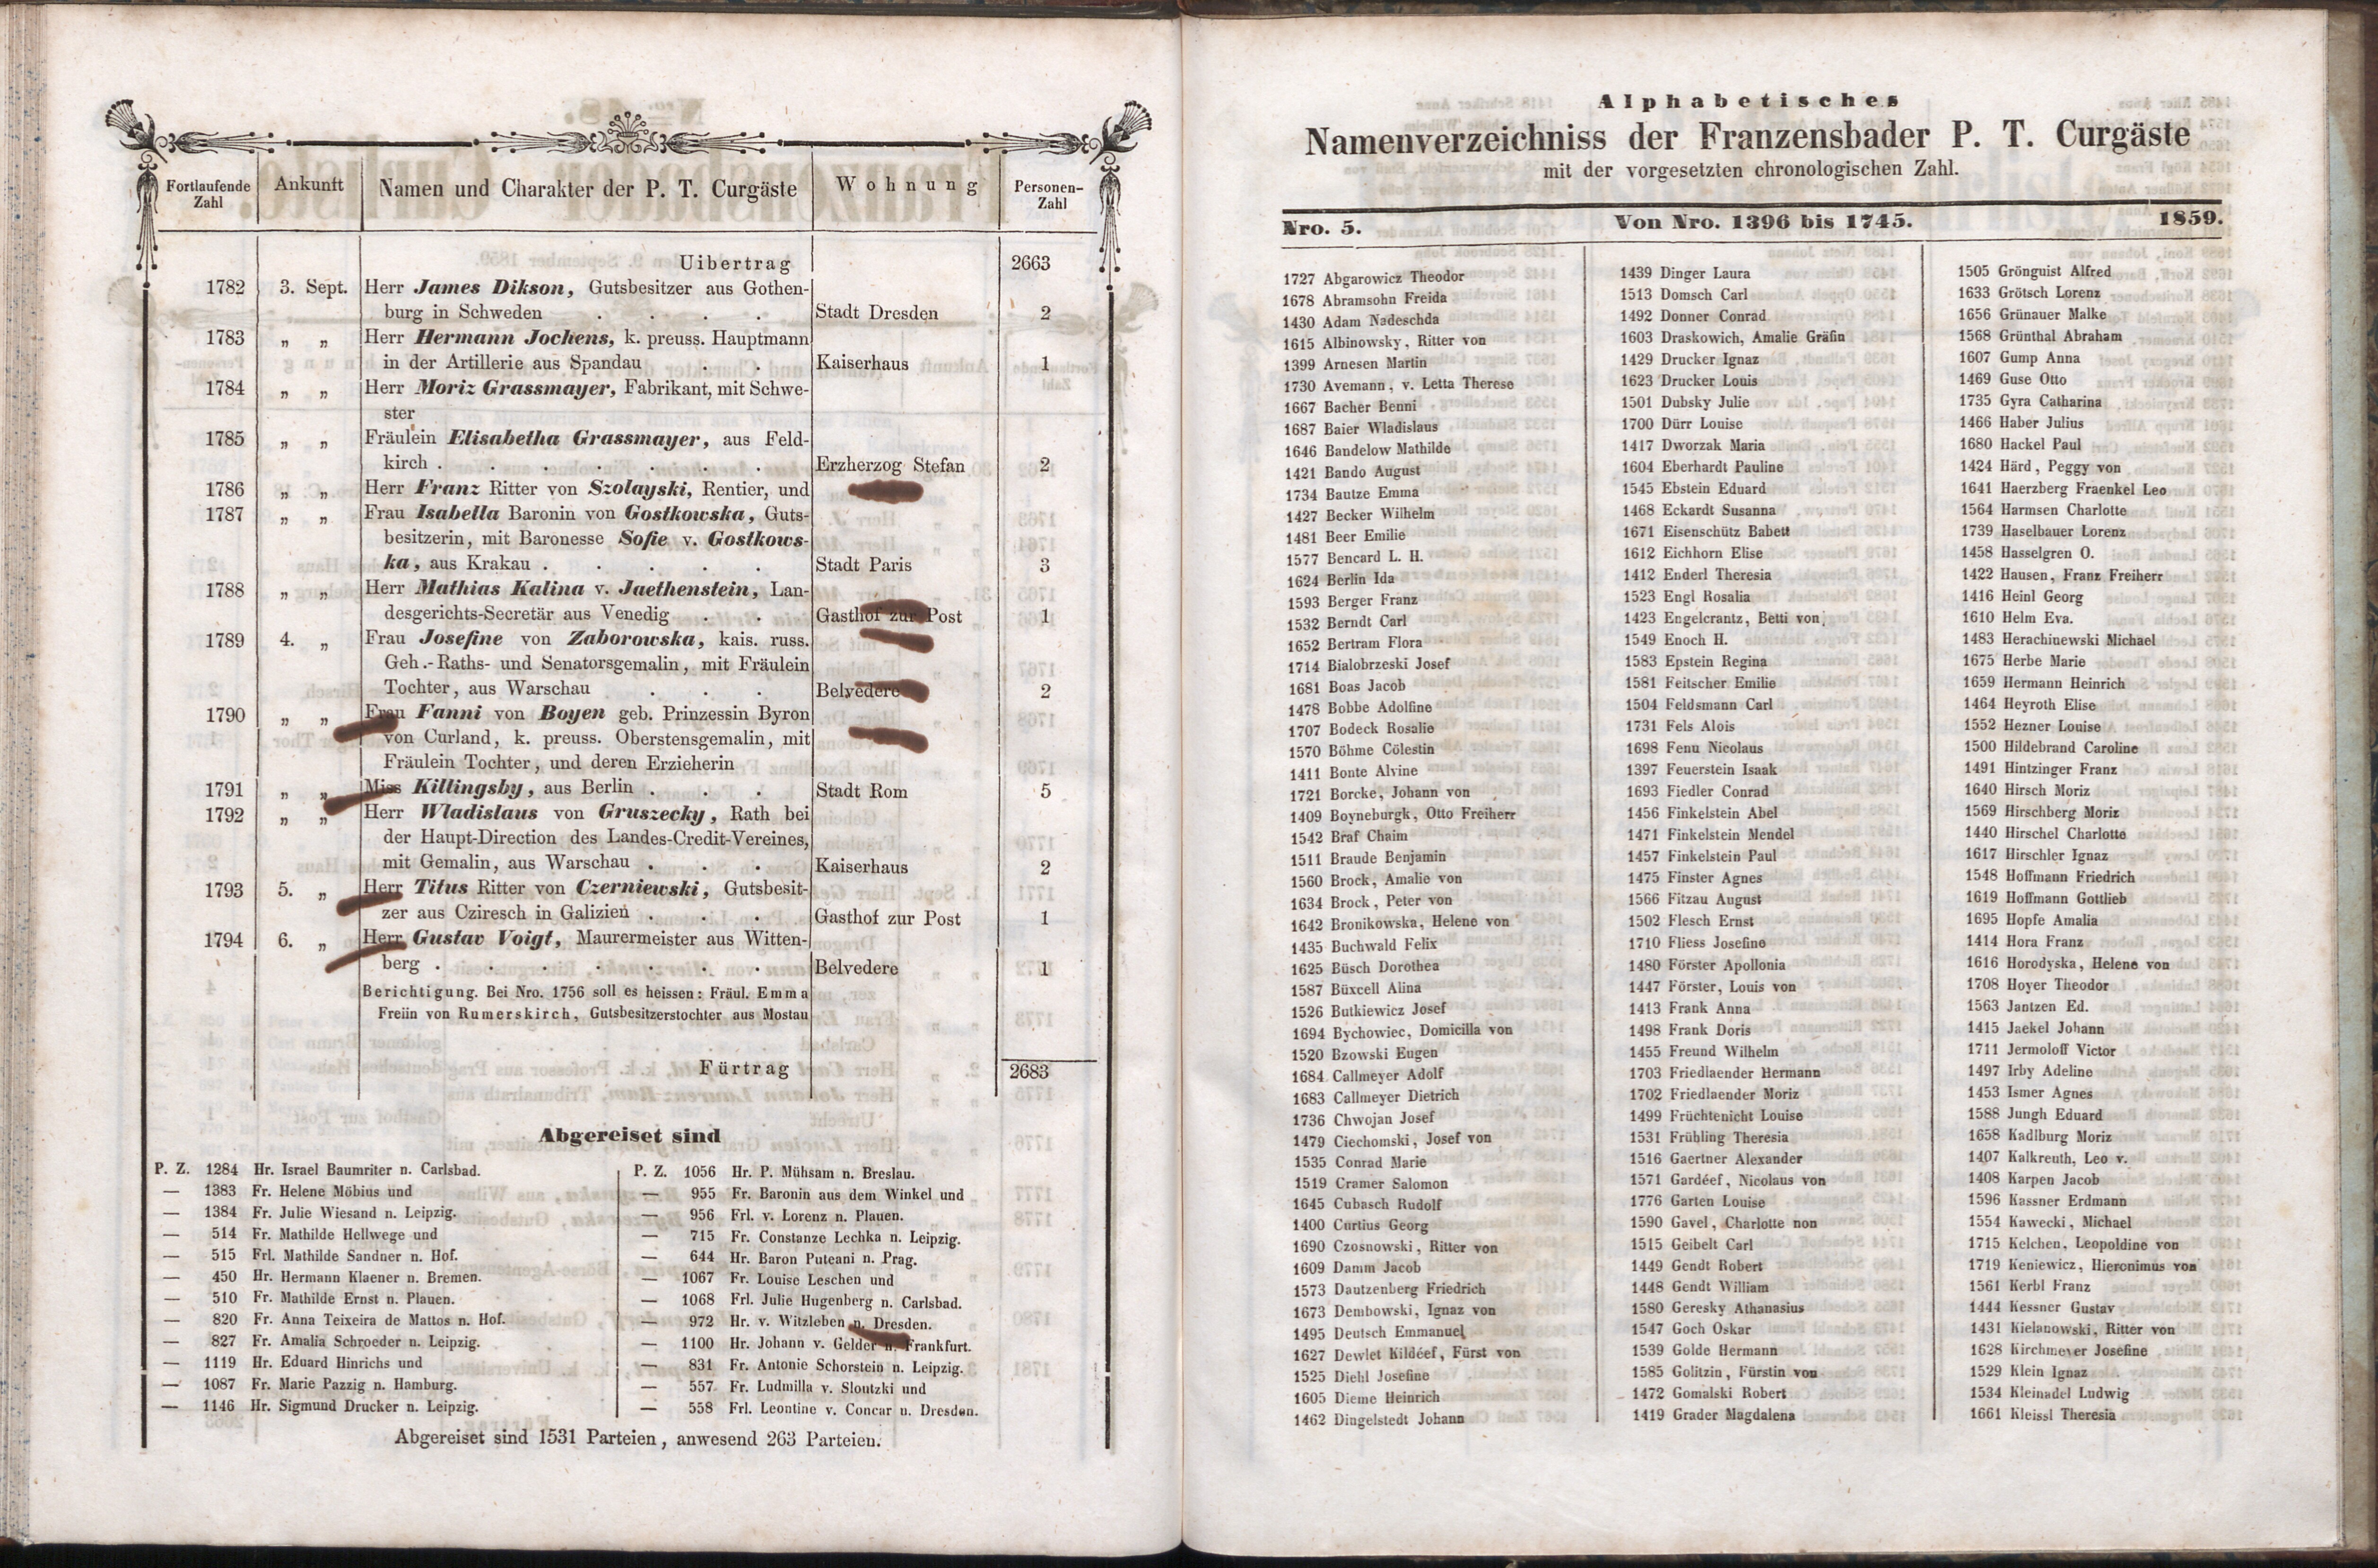 Fortlaufende Zahl Ankunft Namen und Charakter der P. T. Curgäste Wohnung Personen-Zahl
Uibertrag 2663
1782 3. Sept. Herr James Dikson, Gutsbesitzer aus Gothen-
burg in Schweden . . . . Stadt Dresden 2
1783 „ „ Herr Hermann Jochens, k. preuss. Hauptmann
in der Artillerie aus Spandau . . Kaiserhaus 1
1784 „ „ Herr Moriz Grassmayer, Fabrikant, mit Schwe-
ster
1785 „ „ Fräulein Elisabetha Grassmayer, aus Feld-
kirch . . . . . . . Erzherzog Stefan 2
1786 „ „ Herr Franz Ritter von Szolayski, Rentier, und
1787 „ „ Frau Isabella Baronin von Gostkowska, Guts-
besitzerin, mit Baronesse Sofie v. Gostkows-
ka, aus Krakau . . . . . Stadt Paris 3
1788 „ „ Herr Mathias Kalina v. Jaethenstein, Lan-
desgerichts-Secretär aus Venedig . . Gasthof zur Post 1
1789 4. „ Frau Josefine von Zaborowska, kais. russ.
Geh.-Raths- und Senatorsgemalin, mit Fräulein
Tochter, aus Warschau . . . Belvedere 2
1790 „ „ Frau Fanni von Boyen geb. Prinzessin Byron
von Curland, k. preuss. Oberstensgemalin, mit
Fräulein Tochter, und deren Erzieherin
1791 „ „ Miss Killingsby, aus Berlin . . . Stadt Rom 5
1792 „ „ Herr Wladislaus von Gruszecky, Rath bei
der Haupt-Direction des Landes-Credit-Vereines,
mit Gemalin, aus Warschau . . . Kaiserhaus 2
1793 5. „ Herr Titus Ritter von Czerniewski, Gutsbesit-
zer aus Cziresch in Galizien . . . Gasthof zur Post 1
1794 6. „ Herr Gustav Voigt, Maurermeister aus Witten-
berg . . . . . . . Belvedere 1
Berichtigung. Bei Nro. 1756 soll es heissen: Fräul. Emma
Freiin von Rumerskirch, Gutsbesitzerstochter aus Mostau
Fürtrag 2683
Abgereiset sind
P. Z. 1284 Hr. Israel Baumriter n. Carlsbad.
— 1383 Fr. Helene Möbius und
— 1384 Fr. Julie Wiesand n. Leipzig.
— 514 Fr. Mathilde Hellwege und
— 515 Frl. Mathilde Sandner n. Hof.
— 450 Hr. Hermann Klaener n. Bremen.
— 510 Fr. Mathilde Ernst n. Plauen.
— 820 Fr. Anna Teixeira de Mattos n. Hof.
— 827 Fr. Amalia Schroeder n. Leipzig.
— 1119 Hr. Eduard Hinrichs und
— 1087 Fr. Marie Pazzig n. Hamburg.
— 1146 Hr. Sigmund Drucker n. Leipzig.
P. Z. 1056 Hr. P. Mühsam n. Breslau.
— 955 Fr. Baronin aus dem Winkel und
— 956 Frl. v. Lorenz n. Plauen.
— 715 Fr. Constanze Lechka n. Leipzig.
— 644 Hr. Baron Puteani n. Prag.
— 1067 Fr. Louise Leschen und
— 1068 Frl. Julie Hugenberg n. Carlsbad.
— 972 Hr. v. Witzleben n. Dresden.
— 1100 Hr. Johann v. Gelder n. Frankfurt.
— 831 Fr. Antonie Schorstein n. Leipzig.
— 557 Fr. Ludmilla v. Sloutzki und
— 558 Frl. Leontine v. Concar n. Dresden.
Abgereiset sind 1531 Parteien, anwesend 263 Parteien.
Alphabetisches
Namenverzeichniss der Franzensbader P. T. Curgäste
mit der vorgesetzten chronologischen Zahl.
Nro. 5. Von Nro. 1396 bis 1745. 1859.
1727 Abgarowicz Theodor
1678 Abramsohn Freida
1430 Adam Nadeschda
1615 Albinowsky, Ritter von
1399 Arnesen Martin
1730 Avemann, v. Letta Therese
1667 Bacher Benni
1687 Baier Wladislaus
1646 Bandelow Mathilde
1421 Bando August
1734 Bautze Emma
1427 Becker Wilhelm
1481 Beer Emilie
1577 Bencard L. H.
1624 Berlin Ida
1593 Berger Franz
1532 Berndt Carl
1652 Bertram Flora
1714 Bialobrzeski Josef
1681 Boas Jacob
1478 Bobbe Adolfine
1707 Bodeck Rosalie
1570 Böhme Cölestin
1411 Bonte Alvine
1721 Borcke, Johann von
1409 Boyneburgk, Otto Freiherr
1542 Braf Chaim
1511 Braude Benjamin
1560 Brock, Amalie von
1634 Brock, Peter von
1642 Bronikowska, Helene von
1435 Buchwald Felix
1625 Büsch Dorothea
1587 Büxcell Alina
1526 Butkiewicz Josef
1694 Bychowiec, Domicilla von
1520 Bzowski Eugen
1684 Callmeyer Adolf
1683 Callmeyer Dietrich
1736 Chwojan Josef
1479 Ciechomski, Josef von
1535 Conrad Marie
1519 Cramer Salomon
1645 Cubasch Rudolf
1400 Curtius Georg
1690 Czosnowski, Ritter von
1609 Damm Jacob
1573 Dautzenberg Friedrich
1673 Dembowski, Ignaz von
1495 Deutsch Emmanuel
1627 Dewlet Kildéef, Fürst von
1525 Diehl Josefine
1605 Dieme Heinrich
1462 Dingelstedt Johann
1439 Dinger Laura
1513 Domsch Carl
1492 Donner Conrad
1603 Draskowich, Amalie Gräfin
1429 Drucker Ignaz
1623 Drucker Louis
1501 Dubsky Julie
1700 Dürr Louise
1417 Dworzak Maria
1604 Eberhardt Pauline
1545 Ebstein Eduard
1468 Eckardt Susanna
1671 Eisenschütz Babett
1612 Eichhorn Elise
1412 Enderl Theresia
1523 Engl Rosalia
1423 Engelcrantz, Betti von
1549 Enoch H.
1583 Epstein Regina
1581 Feitscher Emilie
1504 Feldsmann Carl
1731 Fels Alois
1698 Fenu Nicolaus
1397 Feuerstein Isaak
1693 Fiedler Conrad
1456 Finkelstein Abel
1471 Finkelstein Mendel
1457 Finkelstein Paul
1475 Finster Agnes
1566 Fitzau August
1502 Flesch Ernst
1710 Fliess Josefine
1480 Förster Apollonia
1447 Förster, Louis von
1413 Frank Anna
1498 Frank Doris
1455 Freund Wilhelm
1703 Friedlaender Hermann
1702 Friedlaender Moriz
1499 Früchtenicht Louise
1531 Frühling Theresia
1516 Gaertner Alexander
1571 Gardéef, Nicolaus von
1776 Garten Louise
1590 Gavel, Charlotte non
1515 Geibelt Carl
1449 Gendt Robert
1448 Gendt William
1580 Geresky Athanasius
1547 Goch Oskar
1539 Golde Hermann
1585 Golitzin, Fürstin von
1472 Gomalski Robert
1419 Grader Magdalena
1505 Grönguist Alfred
1633 Grötsch Lorenz
1656 Grünauer Malke
1568 Grünthal Abraham
1607 Gump Anna
1469 Guse Otto
1735 Gyra Catharina
1466 Haber Julius
1680 Hackel Paul
1424 Härd, Peggy von
1641 Haerzberg Fraenkel Leo
1564 Harmsen Charlotte
1739 Haselbauer Lorenz
1458 Hasselgren O.
1422 Hausen, Franz Freiherr
1416 Heinl Georg
1610 Helm Eva.
1483 Herachinewski Michael
1675 Herbe Marie
1659 Hermann Heinrich
1464 Heyroth Elise
1552 Hezner Louise
1500 Hildebrand Caroline
1491 Hintzinger Franz
1640 Hirsch Moriz
1569 Hirschberg Moriz
1440 Hirschel Charlotte
1617 Hirschler Ignaz
1548 Hoffmann Friedrich
1619 Hoffmann Gottlieb
1695 Hopfe Amalia
1414 Hora Franz
1616 Horodyska, Helene von
1708 Hoyer Theodor
1563 Jantzen Ed.
1415 Jaekel Johann
1711 Jermoloff Victor
1497 Irby Adeline
1453 Ismer Agnes
1588 Jungh Eduard
1658 Kadlburg Moriz
1407 Kalkreuth, Leo v.
1408 Karpen Jacob
1596 Kassner Erdmann
1554 Kawecki, Michael
1715 Kelchen, Leopoldine von
1719 Keniewicz, Hieronimus von
1561 Kerbl Franz
1444 Kessner Gustav
1431 Kielanowski, Ritter von
1628 Kirchmeyer Josefine
1529 Klein Ignaz
1534 Kleinadel Ludwig
1661 Kleissl Theresia